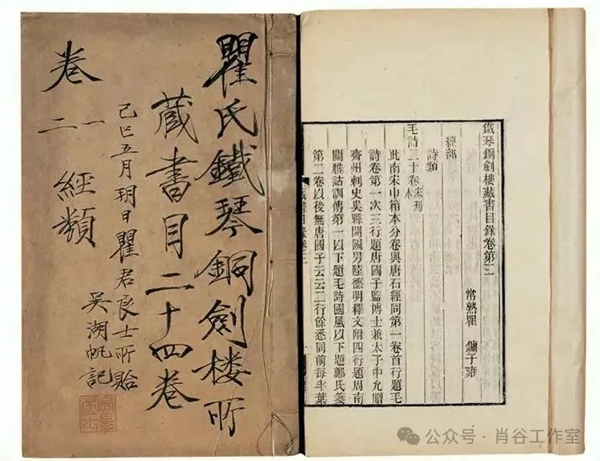 瞿氏鐵琴銅劍楼所
藏書目二十四卷
己巳五月玥日瞿君良士所貽
吳湖帆記
卷一二 經類
鐵琴銅劍樓藏書目錄卷第三
常熟瞿 鏞子雍
經部
詩類
毛詩二十卷宋刊本
此南宋巾箱本分卷與唐石經同第一卷首行題毛
詩卷第一次三行題唐國子監博士兼太子中允贈
齊州刺史吳縣開國男陸德明釋文附四行題周南
關雎詁訓傳第一以下題毛詩國風以下題鄭氏箋
第二卷以後無唐國子云云二行餘悉同前每半葉
公众号·肖谷工作室